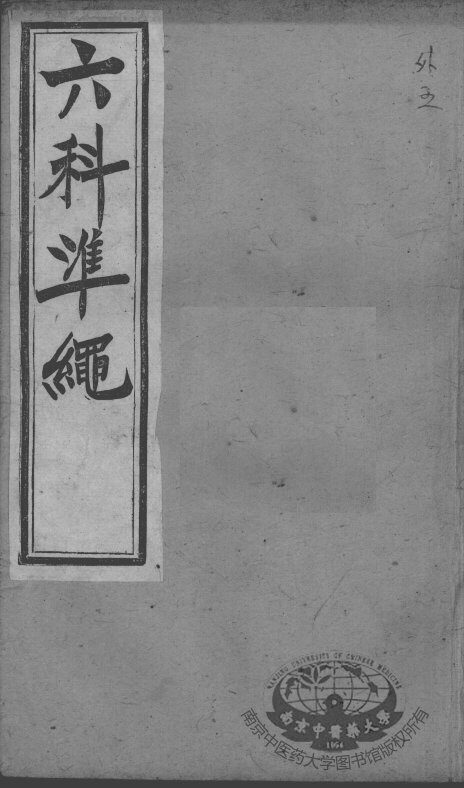 六科準繩
外五
NANJING UNIVERSITY OF CHINESE MEDICINE
南京中醫藥大學
1954
南京中医药大学图书馆版权所有